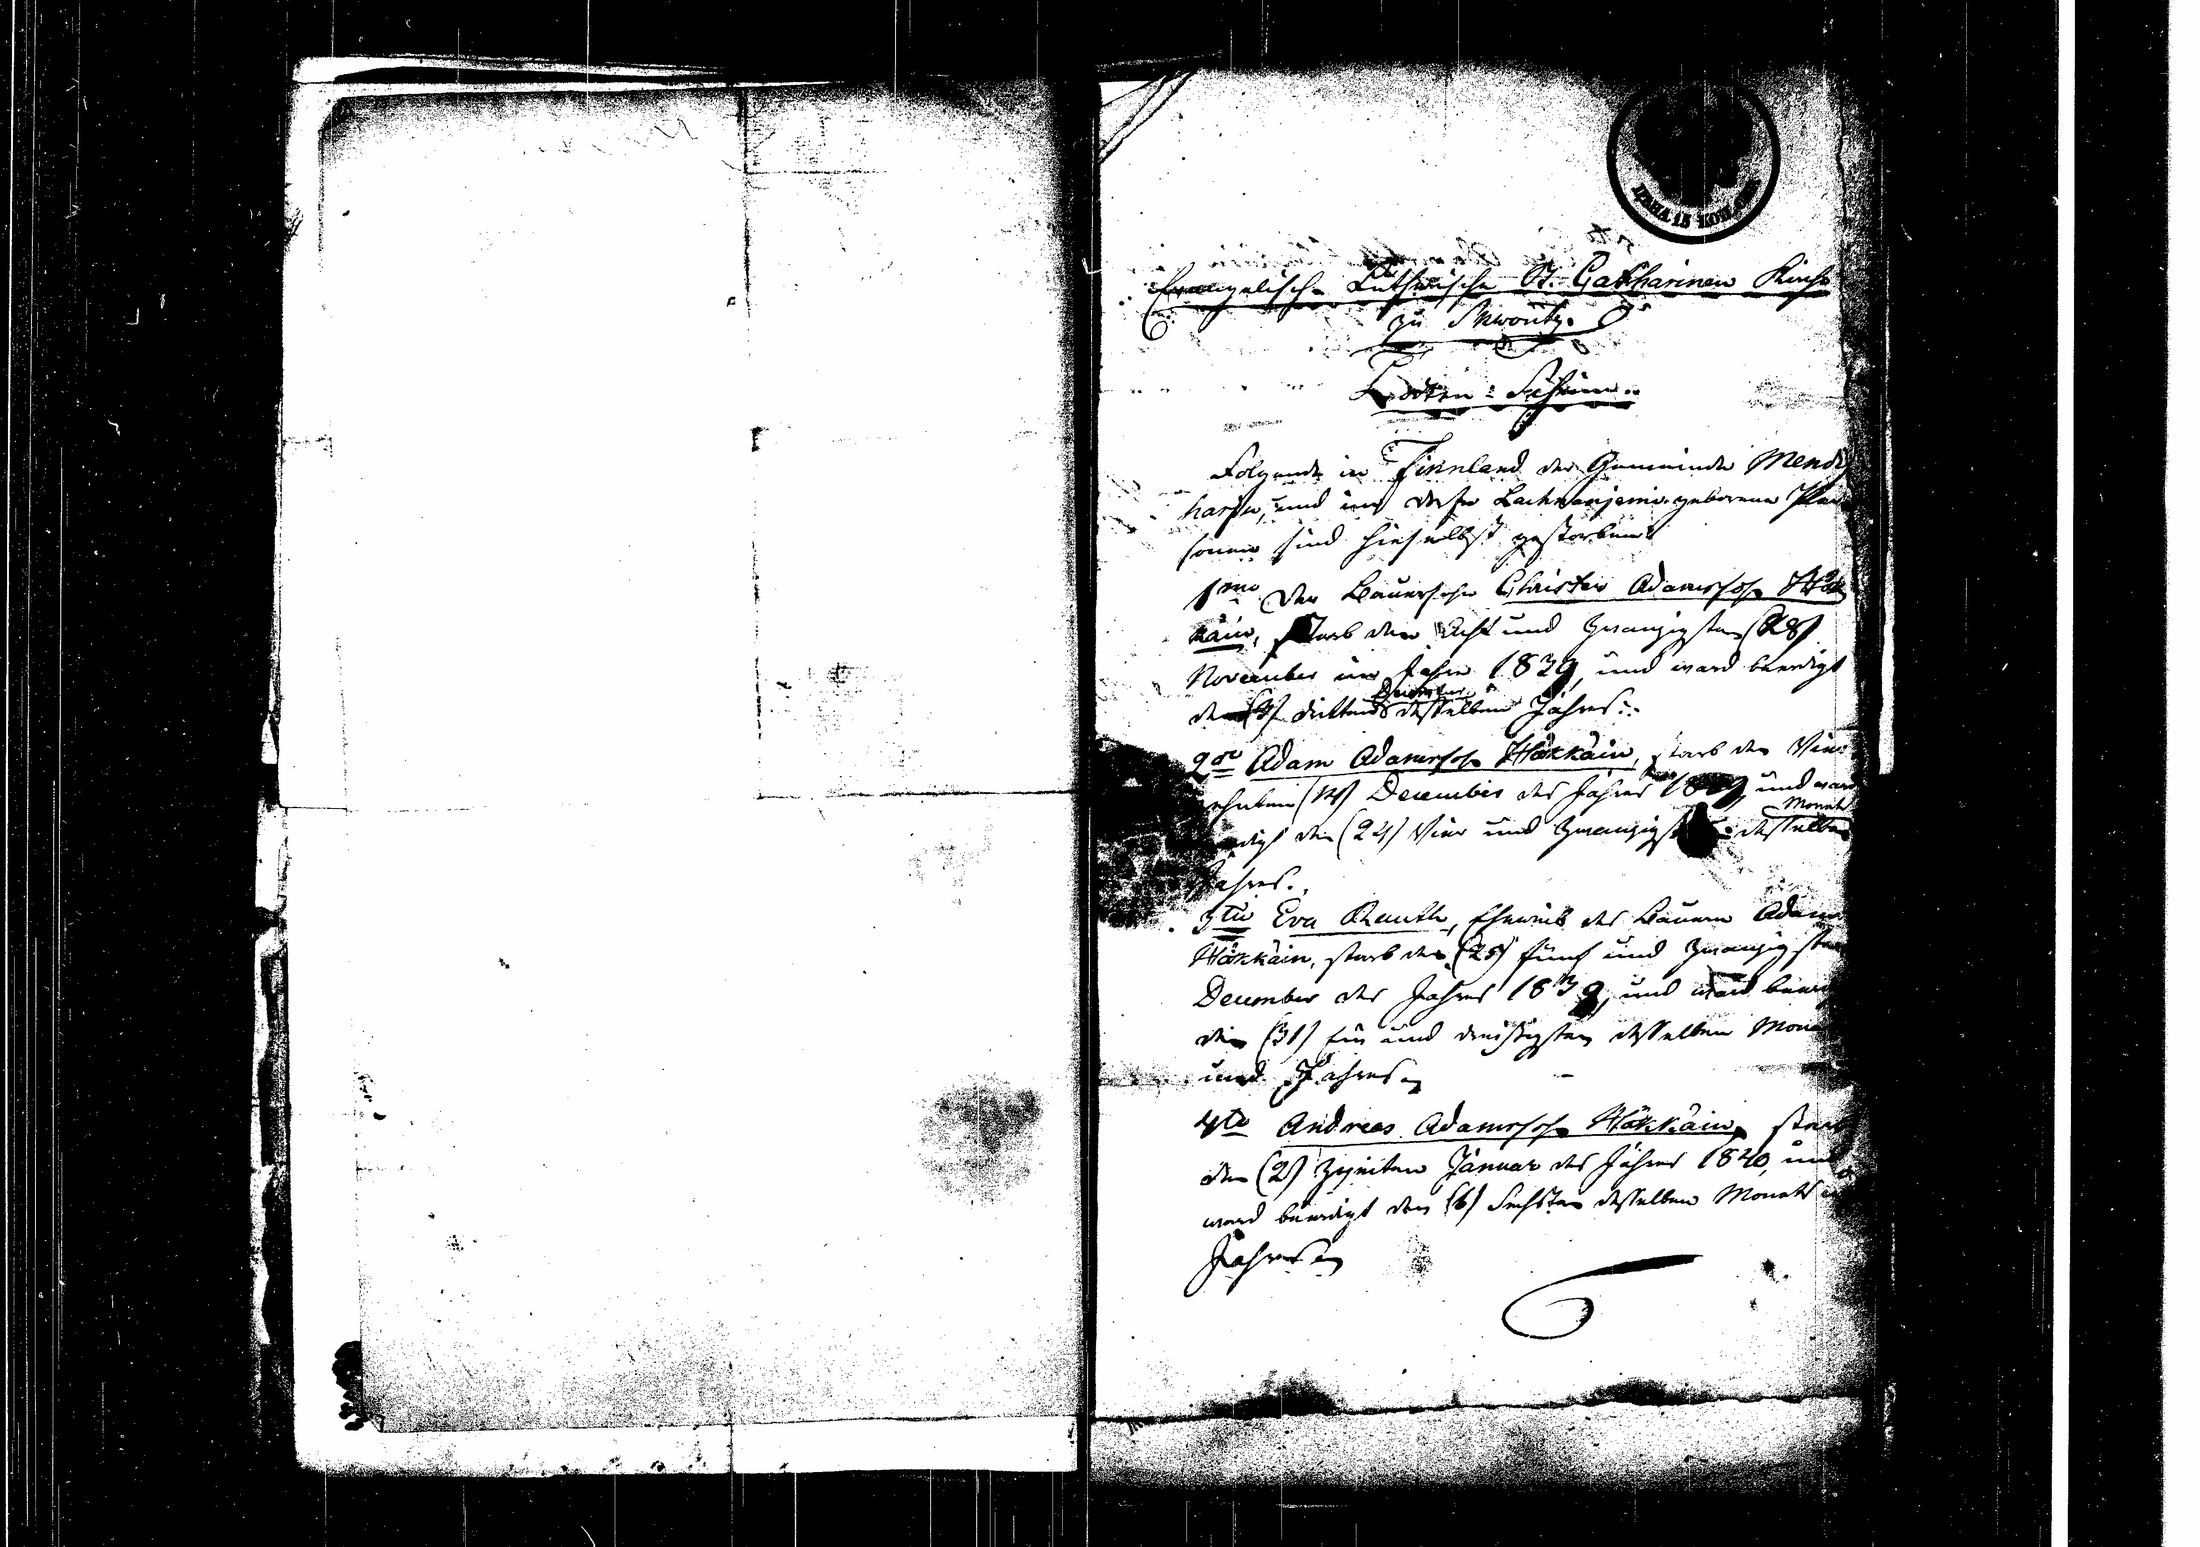 ЦѢНА 15 КОП. СЕР.
Evangelisch-Lutherische St. Catharinen Kirche
zu Skworitz.
Todten-Schein.
Folgende in Finnland der Gemeinde Mendy
harju, und im Dorfe geborene Per
sonen sind hieselbst gestorben:
1mo Der Bauersohn Christer Adamssohn Häk
käin, starb den Acht und Zwanzigsten (28)
November im Jahre 1839, und ward beerdigt
den (3) dritten December desselben Jahres.
2do Adam Adamssohn Häkkäin, starb den Vier
zehnten (14) December des Jahres 1839, und ward
den (24) Vier und Zwanzigsten desselben Monats
Jahres.
3tio Eva, Eheweib des Bauern Adam
Häkkäin, starb den (25) fünf und Zwanzigsten
December des Jahres 1839, und ward beerd
den (31) ein und dreißigsten desselben Mona
und Jahres
4to Andreas Adamssohn Häkkäin, starb
den (2) Zweiten Januar des Jahres 1840, und
ward beerdigt den (6) Sechsten desselben Monats
Jahres